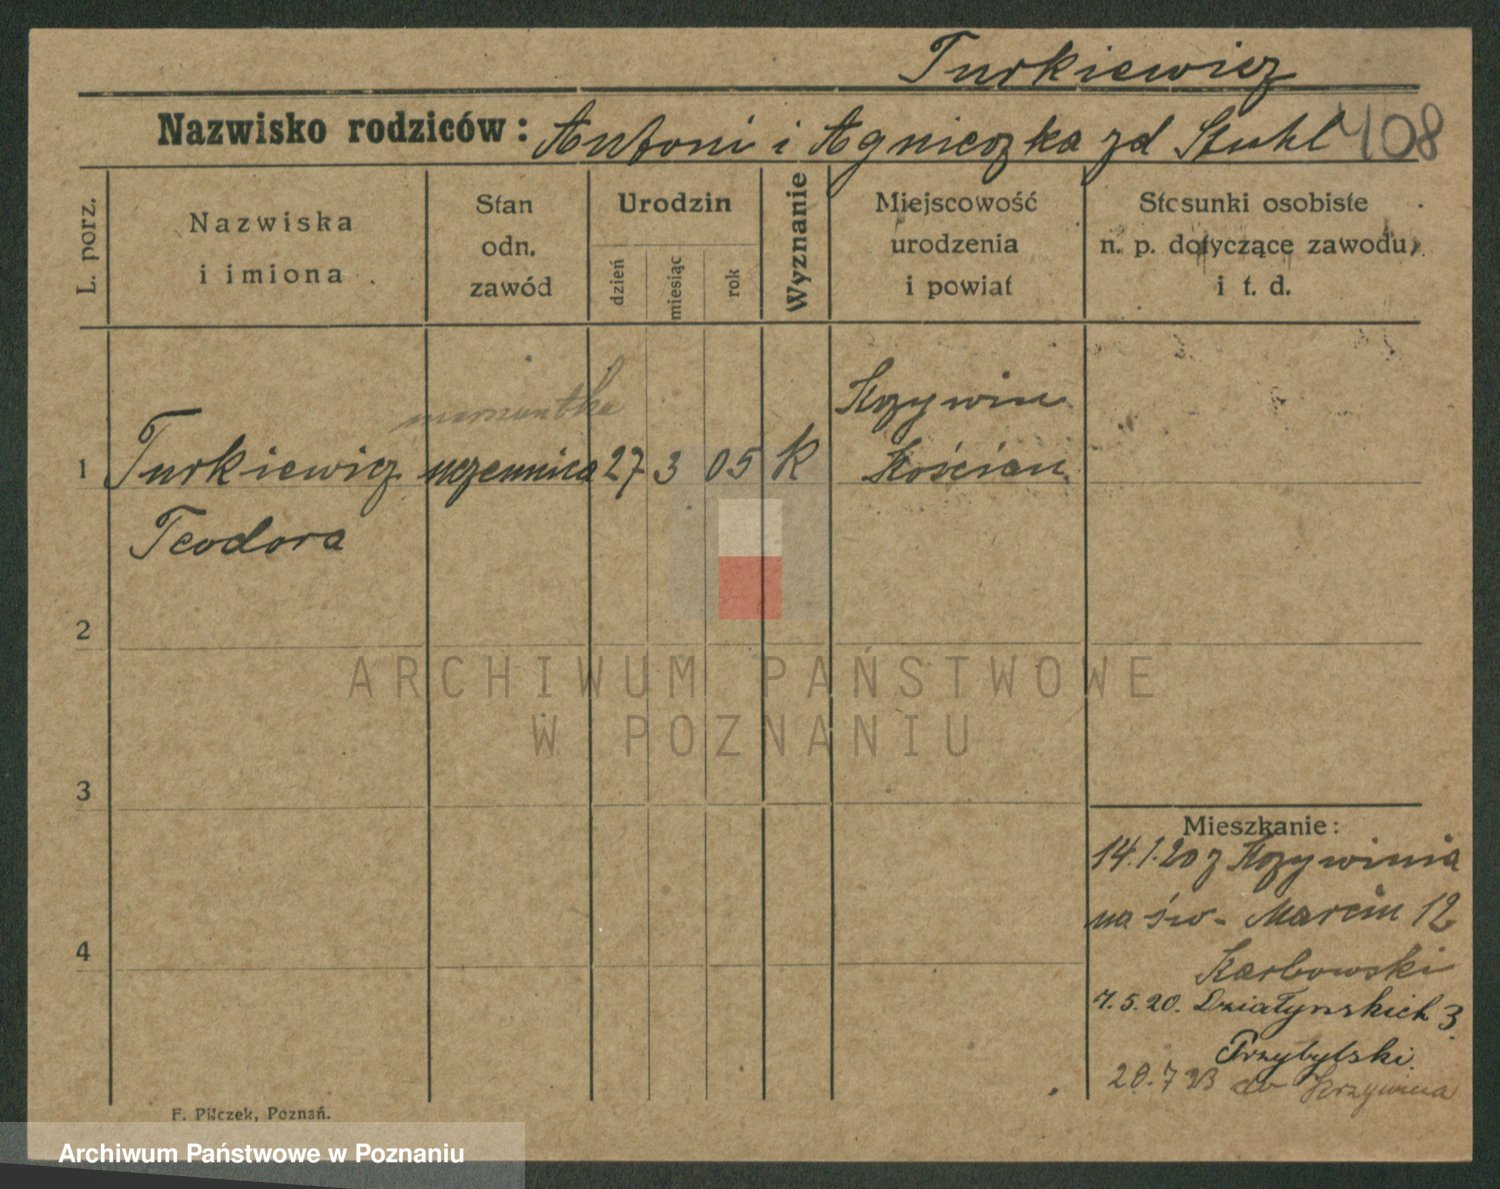 Turkiewicz
Nazwisko rodziców: Antoni i Agnieszka zd Stuhl 408
L. porz.
Nazwiska
i imiona
Stan
odn.
zawód
Urodzin
dzień
miesiąc
rok
Wyznanie
Miejscowość
urodzenia
i powiat
Stosunki osobiste
n. p. dotyczące zawodu,
i t. d.
1 Turkiewicz uczennica 27 3 05 k Krzywin
Kościan
Teodora
2
ARCHIWUM PAŃSTWOWE
W POZNANIU
3
4
Mieszkanie:
14.1.20 z Krzywinia
na św. Marcin 12
Karbowski
7.5.20. Działyńskich 3
Przybylski.
20.7 23 do Krzywinia
F. Pilczek, Poznań.
Archiwum Państwowe w Poznaniu